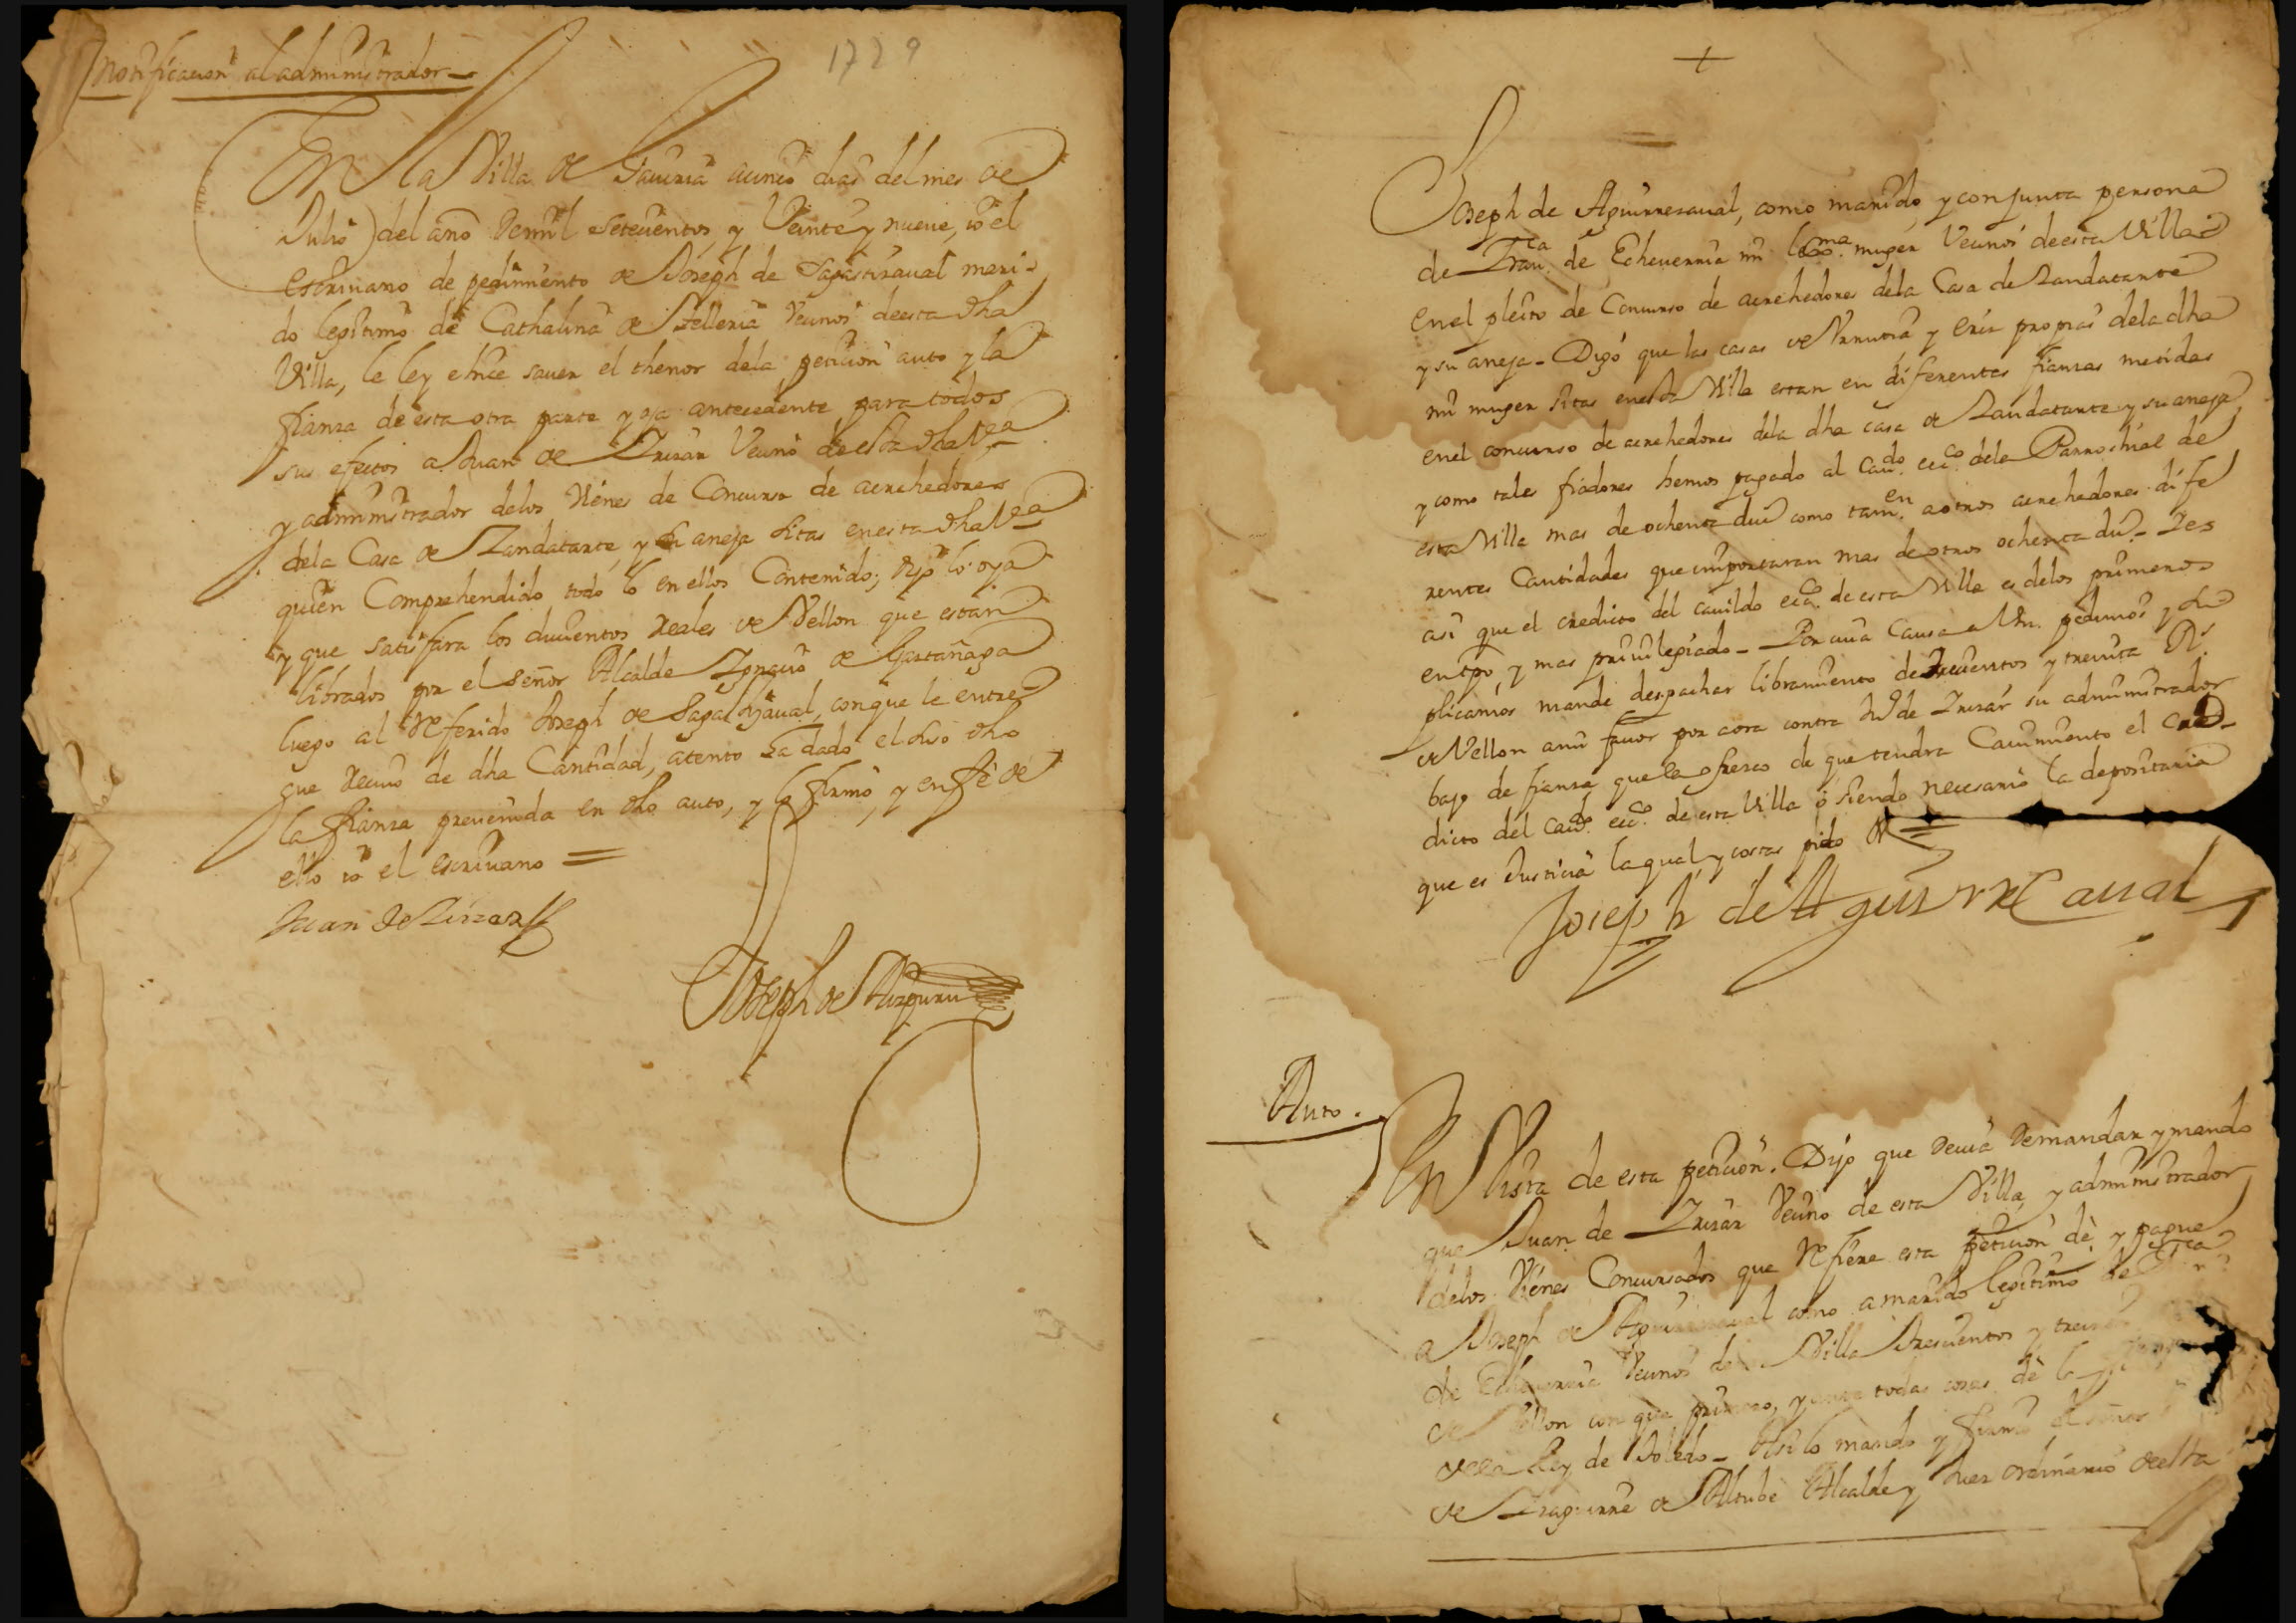 Notificacion al administrador
1729
En la Villa de Gauiria a cinco dias del mes de
Julio del año de mil setecientos y Veinte y nueue, io el
escriuano de pedimiento de Joseph de Sagastizaual mari-
do legitimo de Cathalina de Telleria Vecinos de esta dha
Villa, le ley e hice sauer el thenor de la peticion auto y la
fianza de esta otra parte y oja antecedente para todos
sus efectos a Juan de Irizar Vecino de esta dha Va
y administrador de los Vienes de Concurso de acrehedores
de la Casa de Zandatante, y su aneja sitas en esta dha Va
quien Comprehendido todo lo en ellos Contenido; dijo lo oya
y que satisfara los ducientos reales de Vellon que estan
librados por el señor Alcalde Ignacio de Gartañaga
luego al referido Joseph de Sagastizaual, con que le entre-
gue reciuo de dha Cantidad, atento ha dado el suso dho
la fianza preuenida en dho auto, y lo firmo, y en fè de
ello io el escriuano =
Juan de Yrizar
Joseph de Aizpuru
+
Joseph de Aguirrezaual, como marido y conjunta persona
de Franca de Echeuerria mi lexma muger Vecinos de esta Villa
en el pleito de Concurso de acrehedores dela Casa de Zandatante
y su aneja - Digo que las casas de Vrrutia y propias dela dha
mi muger sitas en esta Villa estan en diferentes fianzas metidas
en el concurso de acrehedores dela dha casa de Zandatante y su aneja
y como tales fiadores hemos pagado al Caudo ecco dela Parrochial de
esta Villa mas de ochenta dus como tamen a otros acrehedores dife
rentes Cantidades que importaran mas de otros ochenta dus - Y es
asi que el credito del cauildo ecco de esta Villa es delos primeros
en tpo, y mas priuilegiado - Por cuia Causa a Vm. pedimos y su
plicamos mande despachar libramiento de trecientos y treinta Rs
de Vellon a mi fauor por aora contra Jun de Irizar su administrador
bajo de fianza que la ofrezco de que tendra Cauimiento el Cre-
dito del Caudo ecco de esta Villa o siendo necesario la depositaria
que es Justicia la qual y costas pido
Joseph de Aguirreçaual
Auto.
En Vista de esta peticion. Dijo que deuia de mandar y mando
que Juan de Irizar Vecino de esta Villa, y administrador
delos Vienes Concursados que refiere esta peticion dè y pague
a Joseph de Aguirrezaual como a marido legitimo de Franca
de Echeuerria Vecinos de Villa trescientos y treinta
de Vellon con que primero, y ante todas cosas dè la fianza
dela Ley de Toledo - Asi lo mando y firmo el señor
de Yraguirre de Altube Alcalde y Juez ordinario de esta